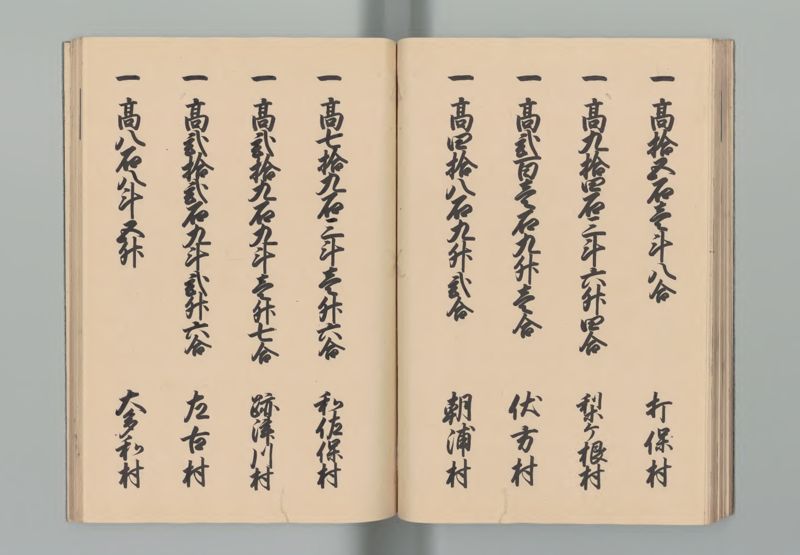 一 高拾五石壱斗八合 打保村
一 高九拾四石三斗六升四合 梨ケ根村
一 高弐百壱石九升壱合 伏方村
一 高四拾八石九升弐合 朝浦村
一 高七拾九石三斗壱升六合 和佐保村
一 高弐拾九石九斗壱升七合 跡津川村
一 高弐拾弐石九斗弐升六合 左古村
一 高八石八斗五升 大多和村